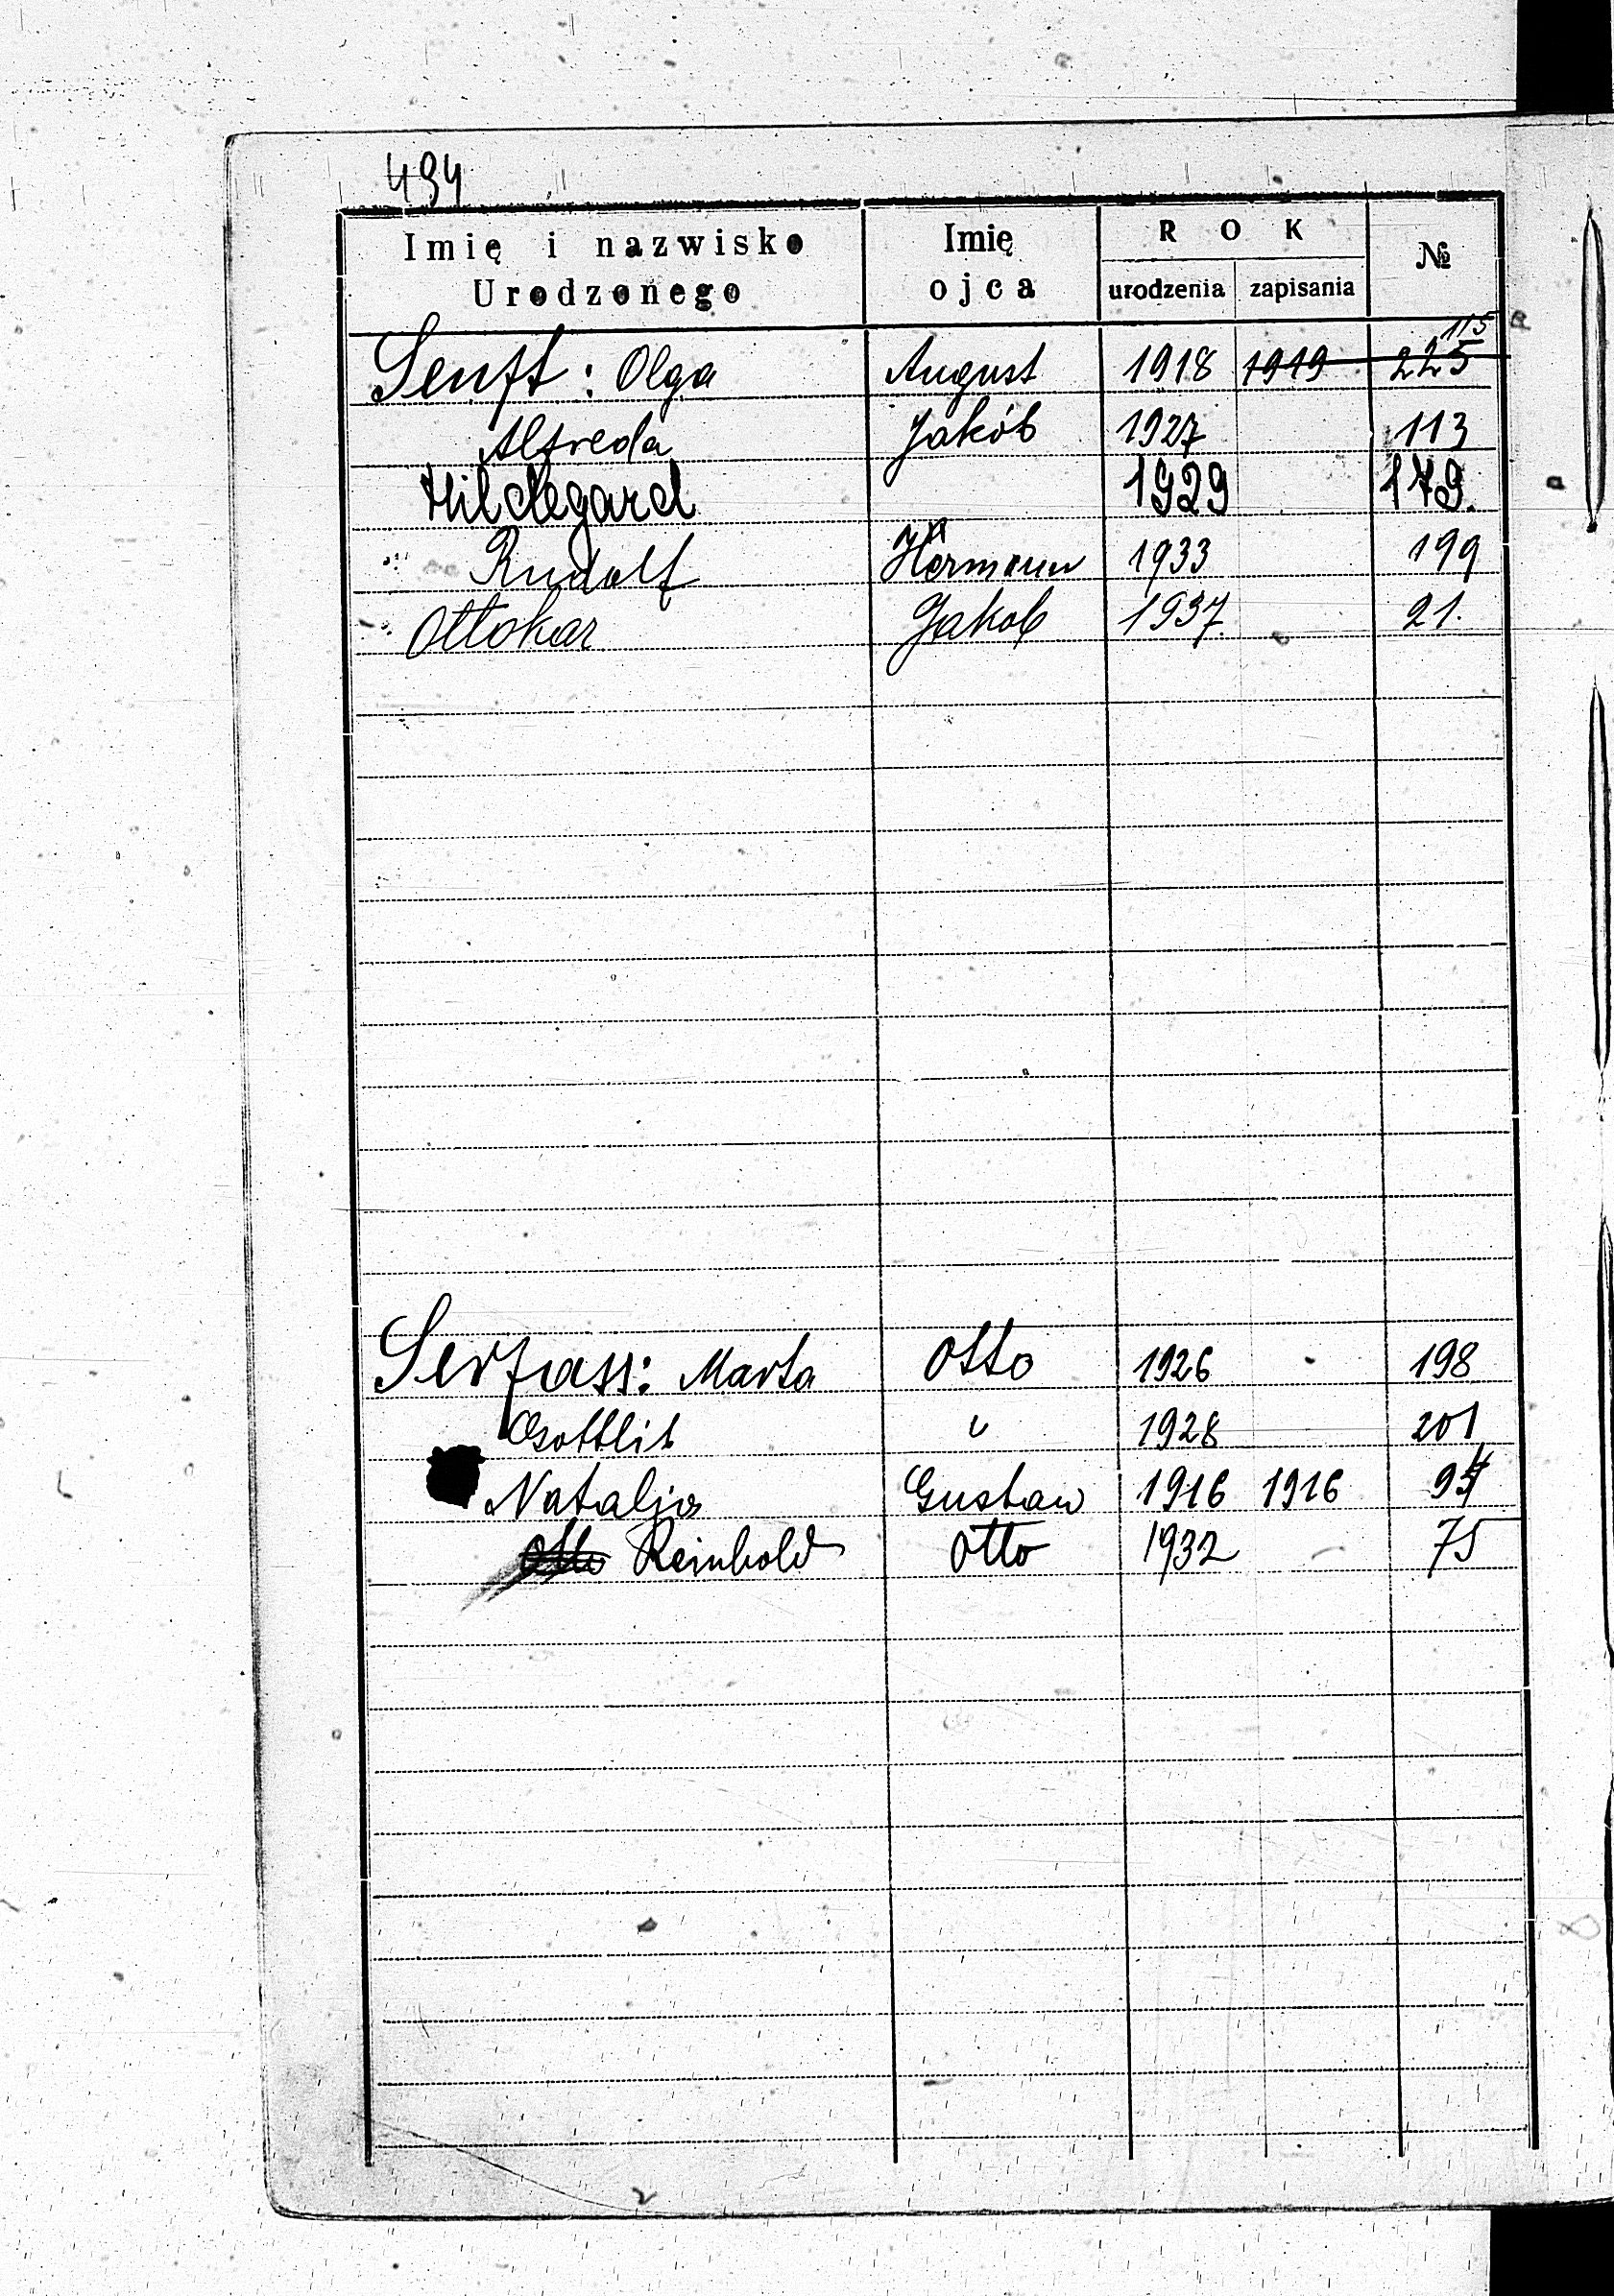 494
Imię i nazwisko Urodzonego Imię ojca ROK urodzenia zapisania №
115
Senft: Olga August 1918 1919 225
Alfreda Jakób 1927 113
Hildegard 1929 179.
" Rudolf Hermann 1933 199
" Ottokar Jakob 1937. 21.
Serfass: Marta Otto 1926 198
Gottlib " 1928 201
Natalja Gustaw 1916 1916 94
Otto Reinhold Otto 1932 75